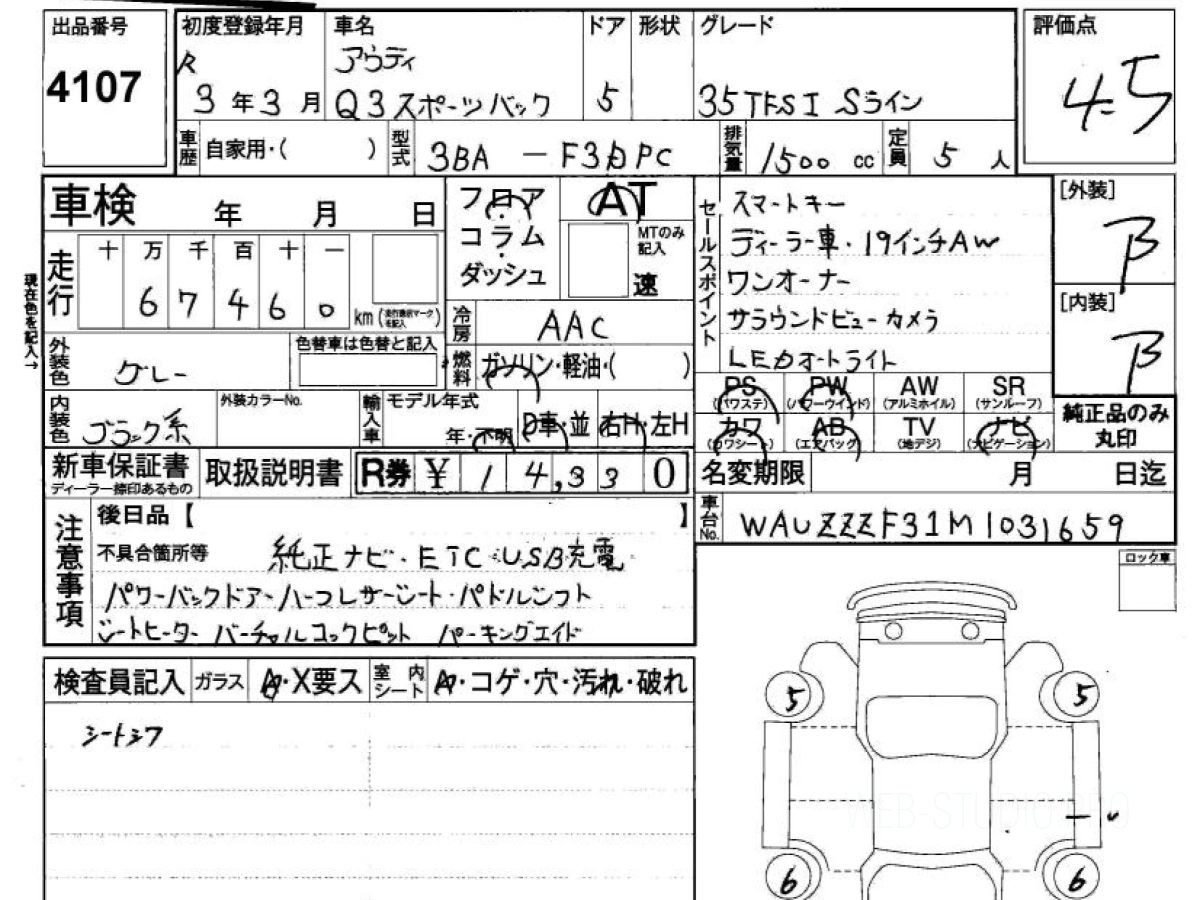 出品番号
4107
初度登録年月
R
3年3月
車名
アウディ
Q3スポーツバック
ドア
5
形状
グレード
35TFSI Sライン
評価点
4.5
車歴
自家用・( )
型式
3BA - F3DPC
排気量
1500 cc
定員
5 人
車検 年 月 日
フロア
コラム
ダッシュ
AT
MTのみ
記入
速
セールスポイント
スマートキー
ディーラー車・19インチAW
ワンオーナー
サラウンドビューカメラ
LEDオートライト
[外装]
B
[内装]
B
現在色を記入→
走行
十 万 千 百 十 一
6 7 4 6 0
km(走行表示マークを記入)
冷房
AAC
外装色
グレー
色替車は色替と記入
燃料
ガソリン・軽油・( )
PS
(パワステ)
PW
(パワーウインド)
AW
(アルミホイル)
SR
(サンルーフ)
カワ
(カワシート)
AB
(エアバッグ)
TV
(地デジ)
ナビ
(ナビゲーション)
純正品のみ
丸印
内装色
ブラック系
外装カラーNo.
輸入車
モデル年式
年・不明
D車・並
右H・左H
新車保証書
ディーラー捺印あるもの
取扱説明書
R券 ¥ 14,330
名変期限 月 日迄
車台No.
WAUZZZF31M1031659
注意事項
後日品【 】
不具合箇所等
純正ナビ・ETC・USB充電
パワーバックドアー・ハーフレザーシート・パドルシフト
シートヒーター バーチャルコックピット パーキングエイド
ロック車
検査員記入
ガラス
A・X要ス
室内シート
A・コゲ・穴・汚れ・破れ
シートシワ
5
5
6
6
WEB-STUDIO.PRO